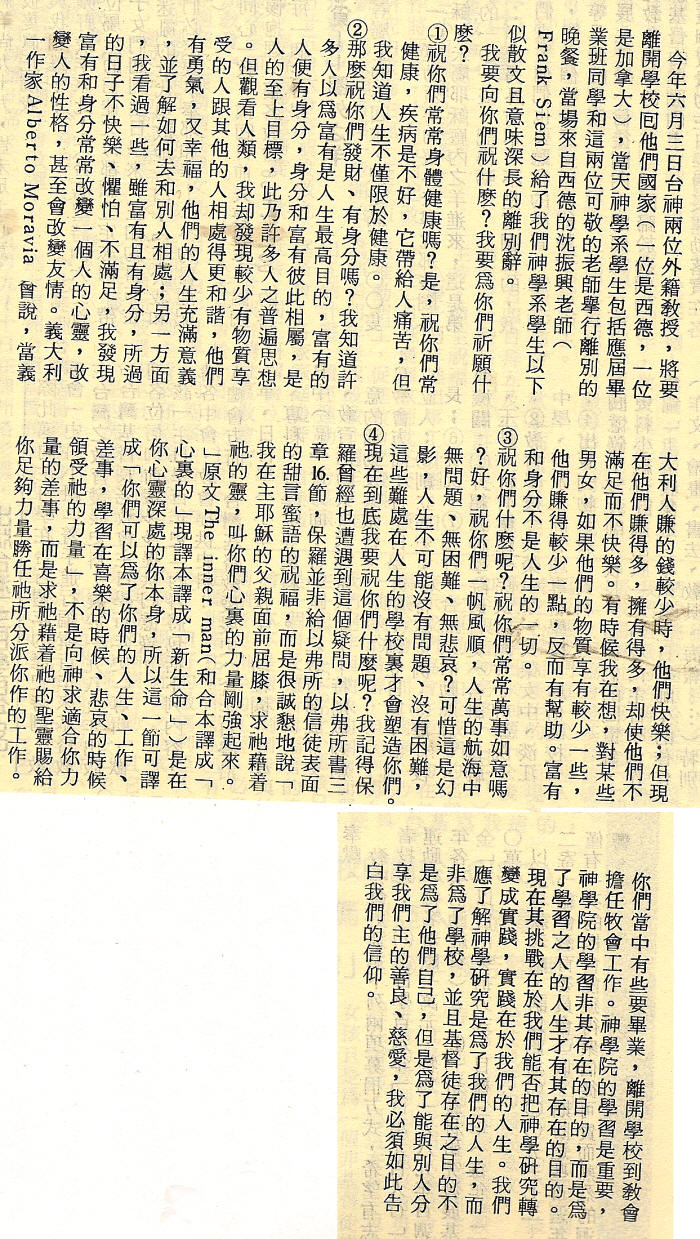 今年六月三日台神兩位外籍教授，將要
離開學校回他們國家（一位是西德，一位
是加拿大），當天神學系學生包括應屆畢
業班同學和這兩位可敬的老師舉行離別的
晚餐，當場來自西德的沈振興老師（
Frank Siem）給了我們神學系學生以下
似散文且意味深長的離別辭。
我要向你們祝什麼？我要爲你們祈願什
麼？
①祝你們常常身體健康嗎？是，祝你們常
健康，疾病是不好，它帶給人痛苦，但
我知道人生不僅限於健康。
②那麼祝你們發財、有身分嗎？我知道許
多人以爲富有是人生最高目的，富有的
人便有身分，身分和富有彼此相屬，是
人的至上目標，此乃許多人之普遍思想
。但觀看人類，我却發現較少有物質享
受的人跟其他的人相處得更和諧，他們
有勇氣，又幸福，他們的人生充滿意義
，並了解如何去和別人相處；另一方面
，我看過一些，雖富有且有身分，所過
的日子不快樂、懼怕、不滿足，我發現
富有和身分常常改變一個人的心靈，改
變人的性格，甚至會改變友情。義大利
一作家Alberto Moravia 曾說，當義
大利人賺的錢較少時，他們快樂；但現
在他們賺得多，擁有得多，却使他們不
滿足而不快樂。有時候我在想，對某些
男女，如果他們的物質享有較少一些，
他們賺得較少一點，反而有幫助。富有
和身分不是人生的一切。
③祝你們什麼呢？祝你們常常萬事如意嗎
？好，祝你們一帆風順，人生的航海中
無問題、無困難、無悲哀？可惜這是幻
影，人生不可能沒有問題、沒有困難，
這些難處在人生的學校裏才會塑造你們。
④現在到底我要祝你們什麼呢？我記得保
羅曾經也遭遇到這個疑問，以弗所書三
章16.節，保羅並非給以弗所的信徒表面
的甜言蜜語的祝福，而是很誠懇地說「
我在主耶穌的父親面前屈膝，求祂藉着
祂的靈，叫你們心裏的力量剛強起來。
」原文The inner man（和合本譯成「
心裏的」現譯本譯成「新生命」）是在
你心靈深處的你本身，所以這一節可譯
成「你們可以爲了你們的人生、工作、
差事，學習在喜樂的時候、悲哀的時候
領受祂的力量」，不是向神求適合你力
量的差事，而是求祂藉着祂的聖靈賜給
你足夠力量勝任祂所分派你作的工作。
你們當中有些要畢業，離開學校到教會
擔任牧會工作。神學院的學習是重要，
神學院的學習非其存在的目的，而是爲
了學習之人的人生才有其存在的目的。
現在其挑戰在於我們能否把神學研究轉
變成實踐，實踐在於我們的人生。我們
應了解神學研究是爲了我們的人生，而
非爲了學校，並且基督徒存在之目的不
是爲了他們自己，但是爲了能與別人分
享我們主的善良、慈愛，我必須如此告
白我們的信仰。